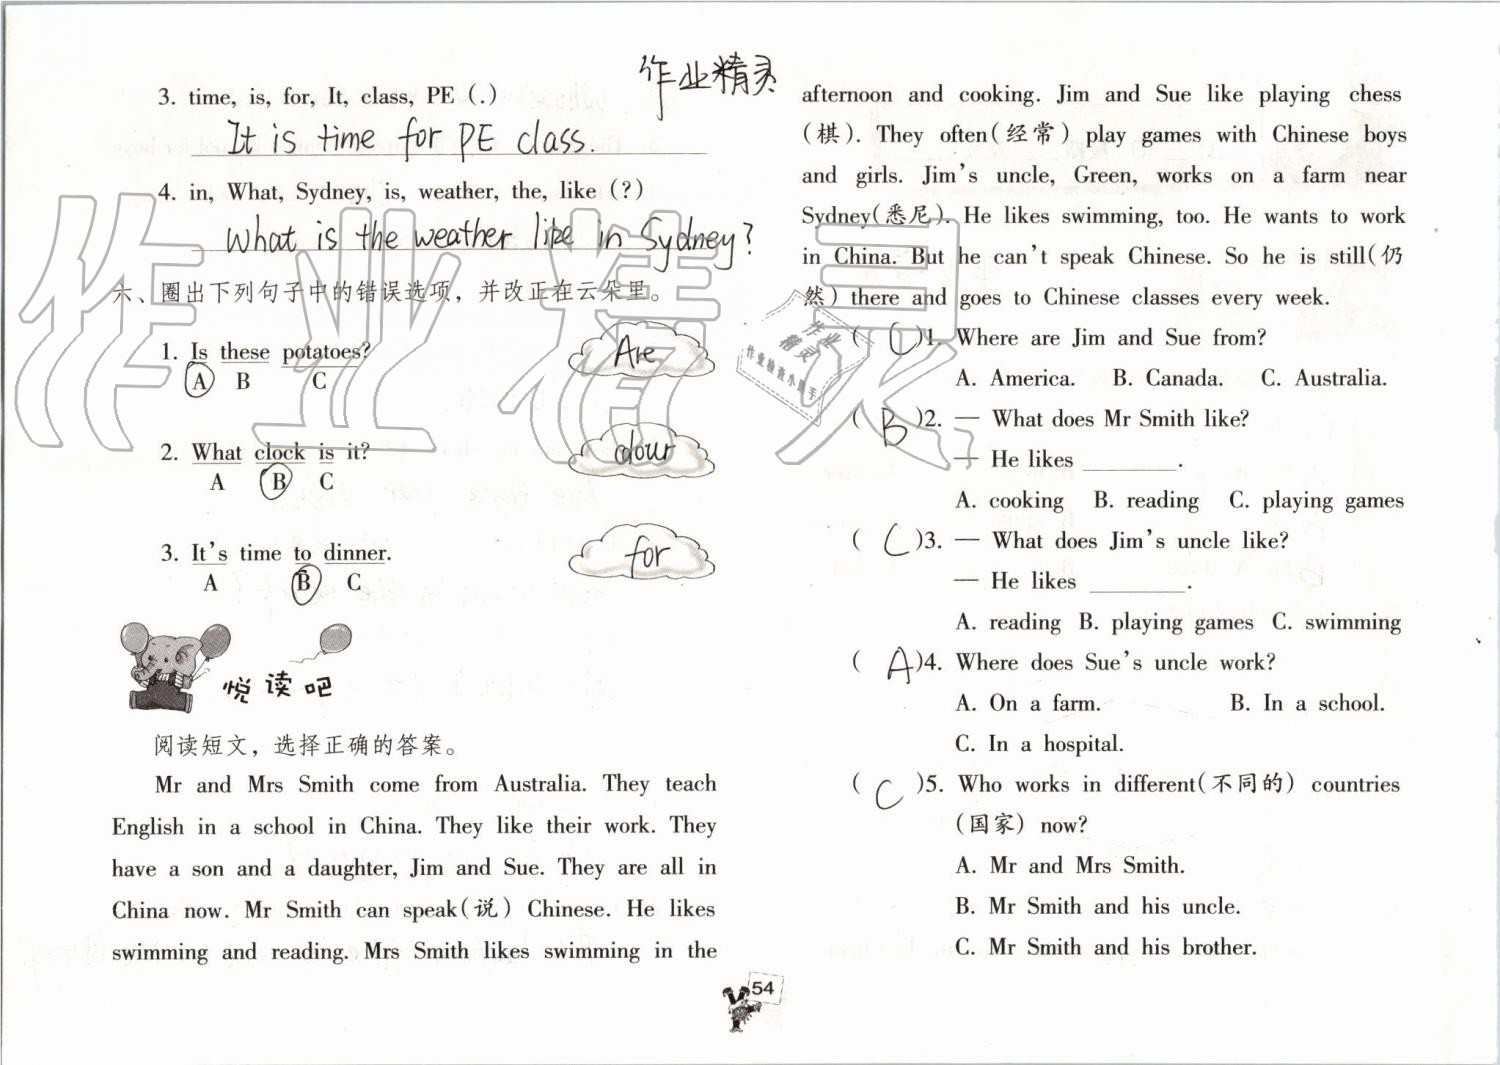 作业精灵
3. time, is, for, It, class, PE (.)
It is time for PE class.
4. in, What, Sydney, is, weather, the, like (?)
What is the weather like in Sydney?
六、圈出下列句子中的错误选项，并改正在云朵里。
1. Is these potatoes?
A B C
Are
2. What clock is it?
A B C
colour
3. It's time to dinner.
A B C
for
悦读吧
阅读短文，选择正确的答案。
Mr and Mrs Smith come from Australia. They teach
English in a school in China. They like their work. They
have a son and a daughter, Jim and Sue. They are all in
China now. Mr Smith can speak(说) Chinese. He likes
swimming and reading. Mrs Smith likes swimming in the
afternoon and cooking. Jim and Sue like playing chess
(棋). They often(经常) play games with Chinese boys
and girls. Jim's uncle, Green, works on a farm near
Sydney(悉尼). He likes swimming, too. He wants to work
in China. But he can't speak Chinese. So he is still(仍
然) there and goes to Chinese classes every week.
( C )1. Where are Jim and Sue from?
A. America. B. Canada. C. Australia.
( B )2. — What does Mr Smith like?
— He likes ________.
A. cooking B. reading C. playing games
( C )3. — What does Jim's uncle like?
— He likes ________.
A. reading B. playing games C. swimming
( A )4. Where does Sue's uncle work?
A. On a farm. B. In a school.
C. In a hospital.
( C )5. Who works in different(不同的) countries
(国家) now?
A. Mr and Mrs Smith.
B. Mr Smith and his uncle.
C. Mr Smith and his brother.
54
作业精灵
作业
精灵
作业检查小助手